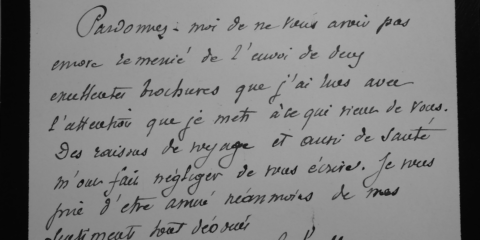 Pardonnez-moi de ne vous avoir pas
encore remercié de l'envoi de deux
excellentes brochures que j'ai lues avec
l'attention que je mets à ce qui vient de vous.
Des raisons de voyage et aussi de santé
m'ont fait négliger de vous écrire. Je vous
prie d'être assuré néanmoins de mes
sentiments tout dévoués